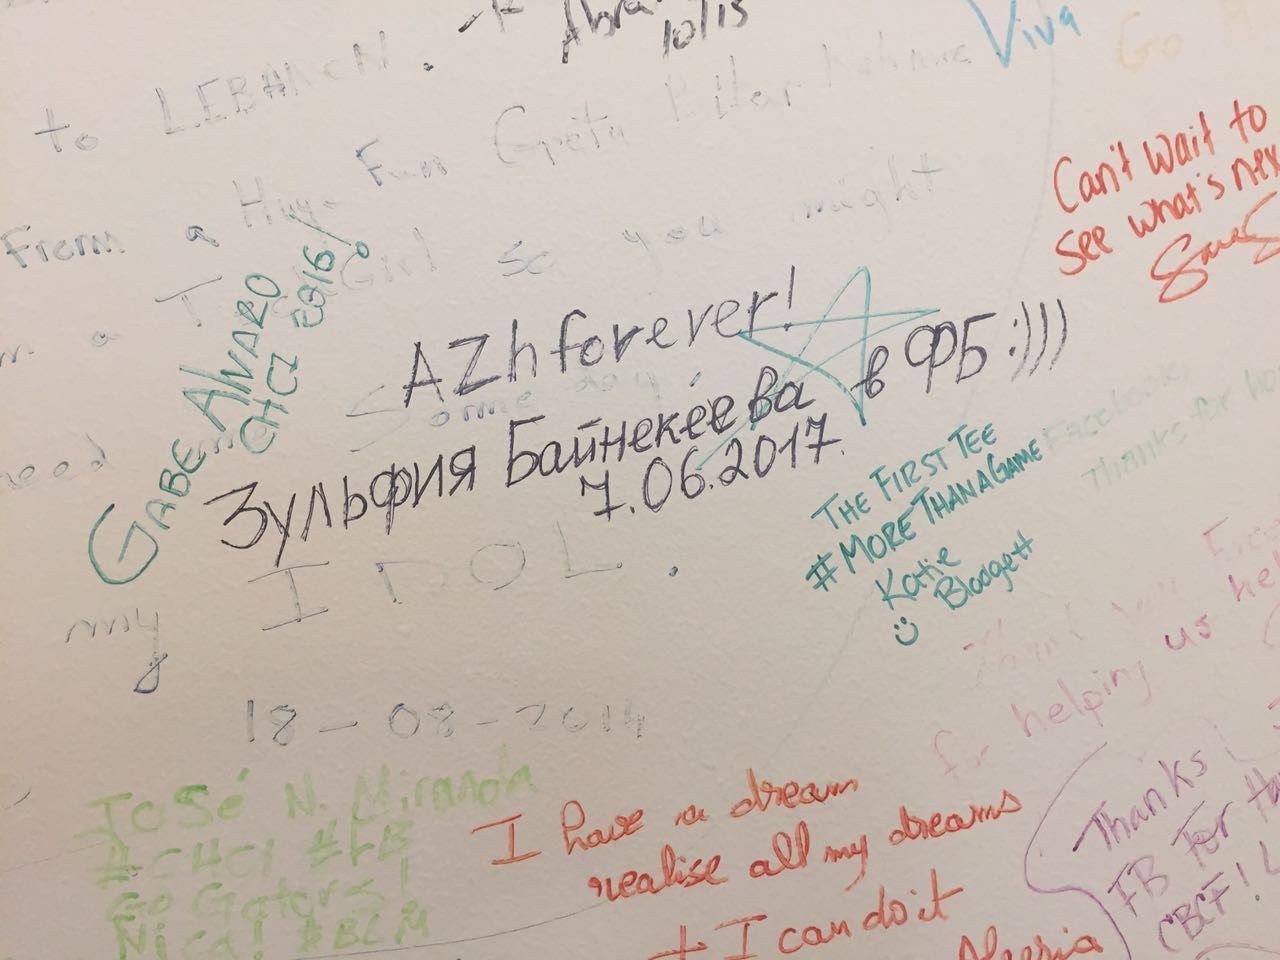 10/15
Viva
Go
to LEBANON.
From a Huge Fan Greta
Girl so you might
Can't wait to
see what's nex
GABE ALVARO
CHCI 2016!
AZh forever!
Зульфия Байнекеева в ФБ :)))
7.06.2017.
Some day,
need
my IDOL.
18-08-2014
THE FIRST TEE
#MORETHANAGAME
Katie
Blodgett
Facebook,
Thanks for
Thank you
for helping us
José N. Miranda
#CHCI #FB
Go Gators!
Nica! #BLM
I have a dream
realise all my dreams
+ I can do it
Thanks
FB For
CBCF!